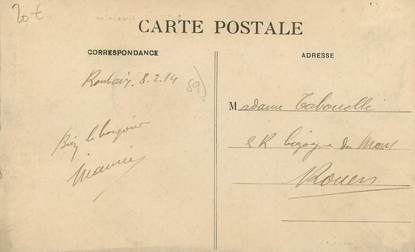 20 €
CARTE POSTALE
CORRESPONDANCE
ADRESSE
Roubaix 8.2.14
(59)
Madame
Bien le bonjour
2 R du Mont
Maurice
Rouen